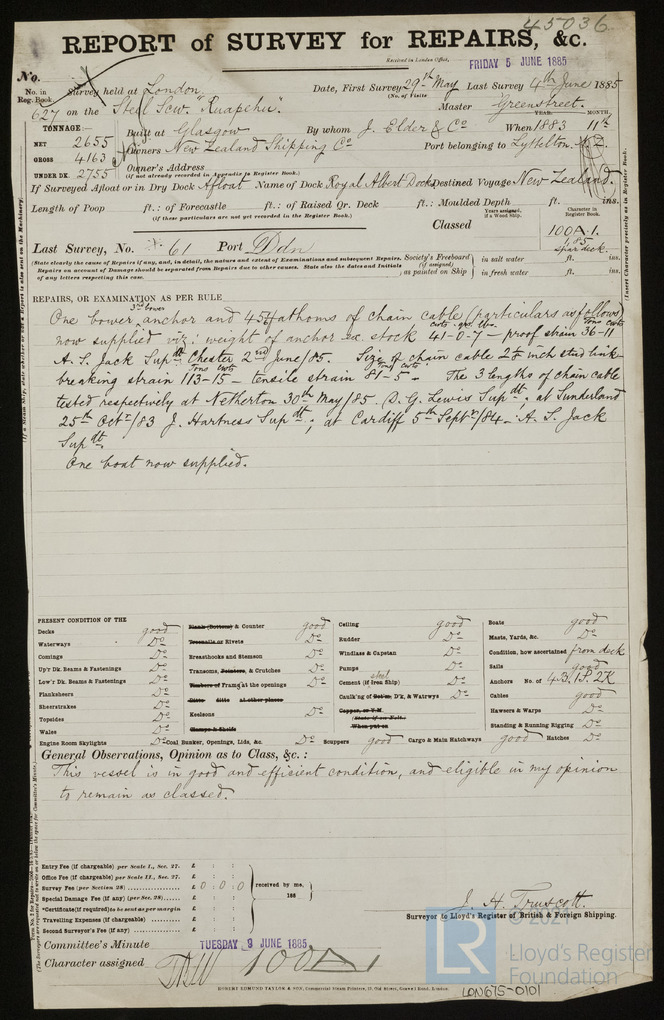 45036
REPORT of SURVEY for REPAIRS, &c.
Received in London Office,
FRIDAY 5 JUNE 1885
No.
No. in Reg. Book.
Survey held at London
Date, First Survey 29th May Last Survey 4th June 1885
(No. of Visits
627 on the Steel Scw. "Ruapehu".
Master Greenstreet.
TONNAGE:—
NET 2655
GROSS 4163
UNDER DK. 2755
Built at Glasgow By whom J. Elder & Co When 1883 11th
YEAR. MONTH.
Owners New Zealand Shipping Co Port belonging to Lyttelton. N.Z.
Owner's Address
(if not already recorded in Appendix to Register Book.)
If Surveyed Afloat or in Dry Dock Afloat Name of Dock Royal Albert Dock Destined Voyage New Zealand.
Length of Poop ft.: of Forecastle ft.: of Raised Qr. Deck ft.: Moulded Depth ft. ins.
(if these particulars are not yet recorded in the Register Book.)
Years assigned, if a Wood Ship.
Character in Register Book.
Classed 100A.1.
spar deck.
Last Survey, No. 61 Port Ldn
(State clearly the cause of Repairs if any, and, in detail, the nature and extent of Examinations and subsequent Repairs.
Repairs on account of Damage should be separated from Repairs due to other causes. State also the dates and Initials
of any letters respecting this case.
Society's Freeboard (if assigned) as painted on Ship
in salt water ft. ins.
in fresh water ft. ins.
REPAIRS, OR EXAMINATION AS PER RULE
3rd bower
One bower anchor and 45 fathoms of chain cable (particulars as follows)
now supplied viz: weight of anchor ex. stock 41-0-7 – proof strain 36-11
cwts. qrs. lbs.
tons cwts
A. S. Jack Supdt Chester 2nd June/85. Size of chain cable 2 inch stud link
breaking strain 113-15 – tensile strain 81-5 – The 3 lengths of chain cable
Tons cwts
Tons cwts
tested respectively at Netherton 30th May/85 D. G. Lewis Supdt; at Sunderland
25th Octr/83 J. Hartness Supdt; at Cardiff 5th Septr/84 – A. S. Jack
Supdt.
One boat now supplied.
PRESENT CONDITION OF THE
Decks good
Waterways Do
Comings Do
Up'r Dk. Beams & Fastenings Do
Low'r Dk. Beams & Fastenings Do
Planksheers Do
Sheerstrakes Do
Topsides Do
Wales Do
Engine Room Skylights Do
Plank (Bottom) & Counter good
Treenails or Rivets Do
Breasthooks and Stemson Do
Transoms, Pointers, & Crutches Do
Timbers of Frame at the openings Do
Ditto ditto at other places
Keelsons Do
Clamps & Shelfs
Coal Bunker, Openings, Lids, &c. Do
Ceiling good
Rudder Do
Windlass & Capstan Do
Pumps Do
steel
Cement (if Iron Ship) Do
Caulk'ng of Bot'm, D'k, & Watrwys Do
Copper, or Y.M.
(State if on Felt.
When put on
Scuppers good
Cargo & Main Hatchways good
Boats good
Masts, Yards, &c. Do
Condition, how ascertained from deck
Sails good
Anchors No. of 4B. 1S. 2K
Cables good
Hawsers & Warps Do
Standing & Running Rigging Do
Hatches Do
General Observations, Opinion as to Class, &c.:
This vessel is in good and efficient condition, and eligible in my opinion
to remain as classed.
Entry Fee (if chargeable) per Scale I., Sec. 27. £ : :
Office Fee (if chargeable) per Scale II., Sec. 27. £ : :
Survey Fee (per Section 28) £ 0 : 0 : 0
Special Damage Fee (if any) (per Sec. 28) £ : :
*Certificate (if required) to be sent as per margin £ : :
Travelling Expenses (if chargeable) £ : :
Second Surveyor's Fee (if any) £ : :
received by me,
188
J. H. Truscott.
Surveyor to Lloyd's Register of British & Foreign Shipping.
Committee's Minute TUESDAY 9 JUNE 1885
Character assigned 100A1
ROBERT EDMUND TAYLOR & SON, Commercial Steam Printers, 19, Old Street, Goswell Road, London.
LR
© 2021
Lloyd's Register
Foundation
LON675-0101